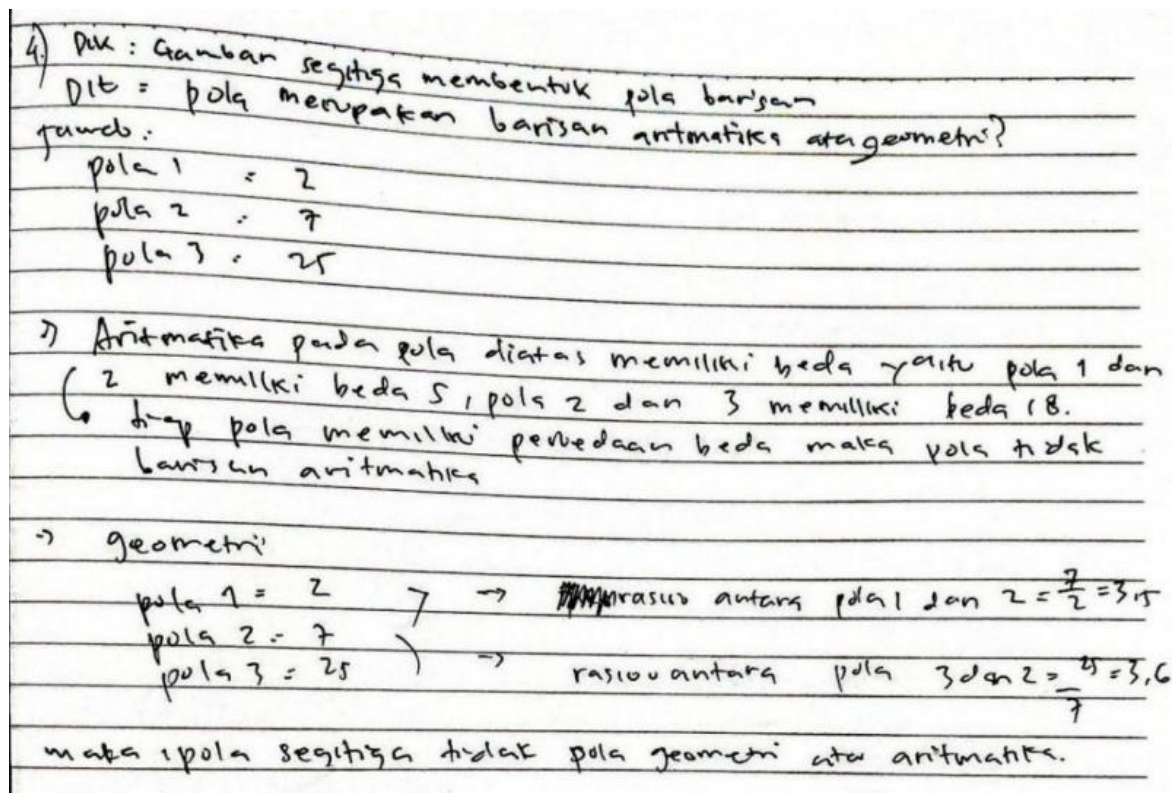 4.) Dik : Gambar segitiga membentuk pola barisan
Dit = pola merupakan barisan aritmatika ata geometri?
Jawab :
pola 1 = 2
pola 2 = 7
pola 3 = 25
→ Aritmatika pada pola diatas memiliki beda yaitu pola 1 dan
2 memiliki beda 5, pola 2 dan 3 memiliki beda 18.
tiap pola memiliki perbedaan beda maka pola tidak
barisan aritmatika
→ geometri
pola 1 = 2 → rasio antara pola 1 dan 2 = 7/2 = 3,5
pola 2 = 7
pola 3 = 25 → rasio antara pola 3 dan 2 = 25/7 = 3,6
maka, pola segitiga tidak pola geometri ata aritmatika.